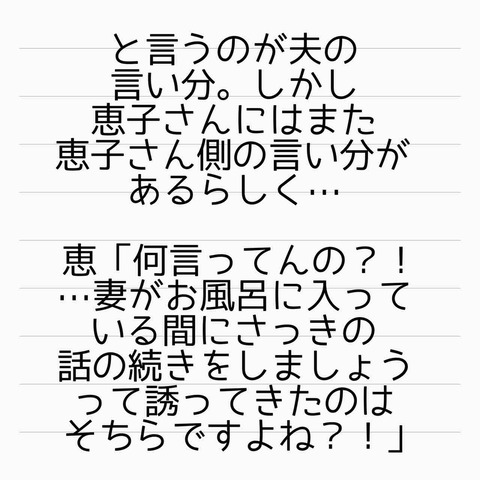 と言うのが夫の
言い分。しかし
恵子さんにはまた
恵子さん側の言い分が
あるらしく…
恵「何言ってんの？！
…妻がお風呂に入って
いる間にさっきの
話の続きをしましょう
って誘ってきたのは
そちらですよね？！」